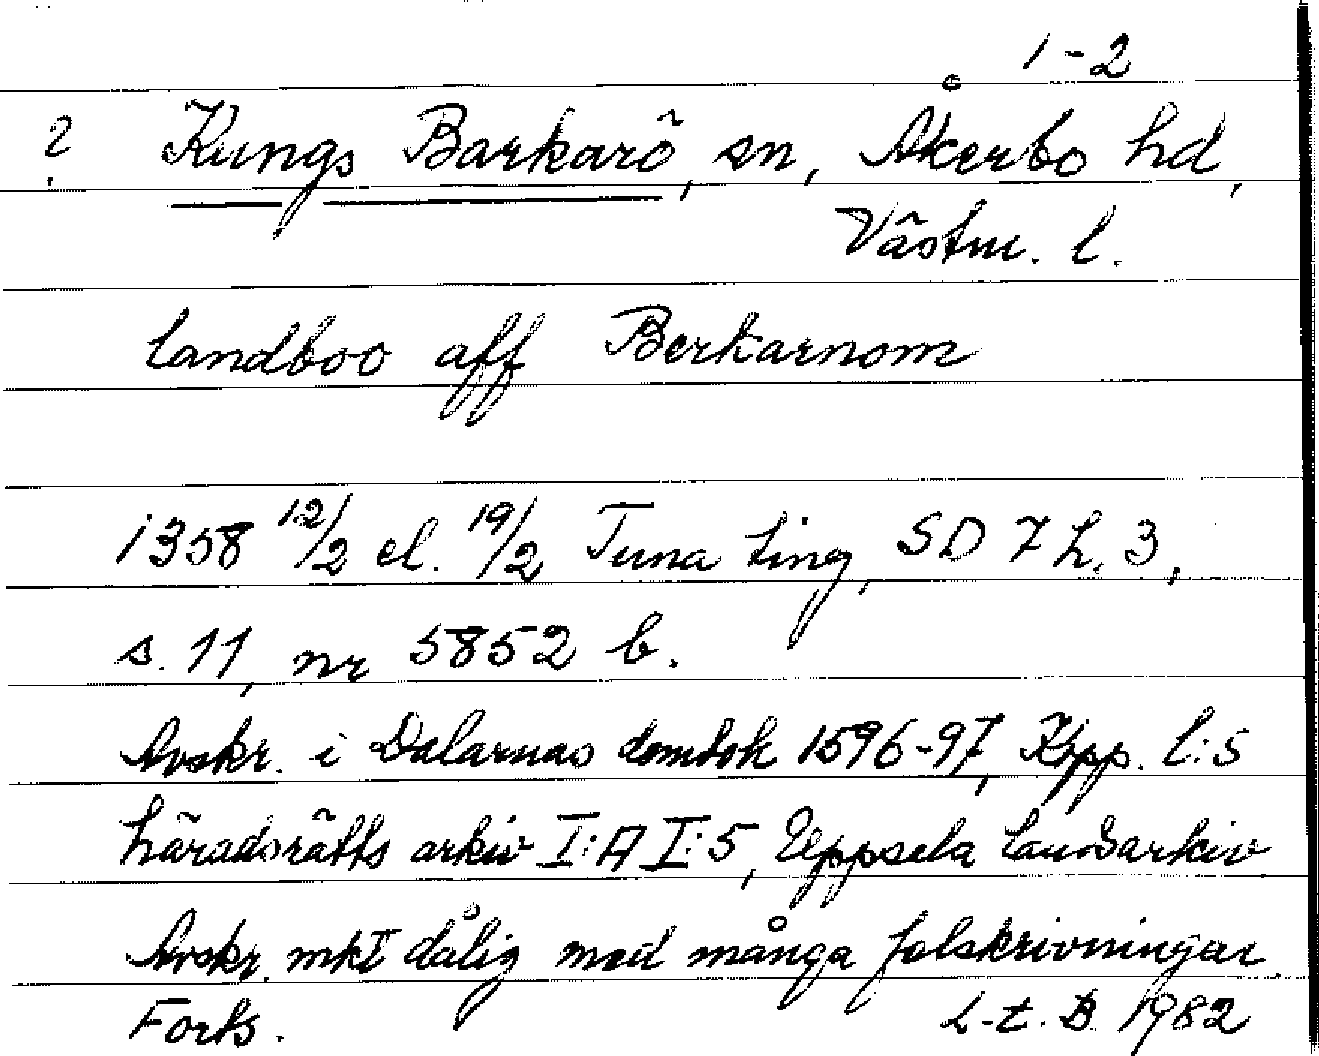 1-2
? Kungs Barkarö, sn, Åkerbo hd,
Västm. l.
landboo aff Berkarnom
1358 12/2 el. 19/2 Tuna ting, SD 7 h. 3,
s. 11, nr 5852 b.
Avskr. i Dalarnas dombok 1596-97, Kopp. l:s
häradsrätts arkiv I:A I:5, Uppsala landsarkiv
Avskr. mkt dålig med många felskrivningar
Forts. L-E. D 1982